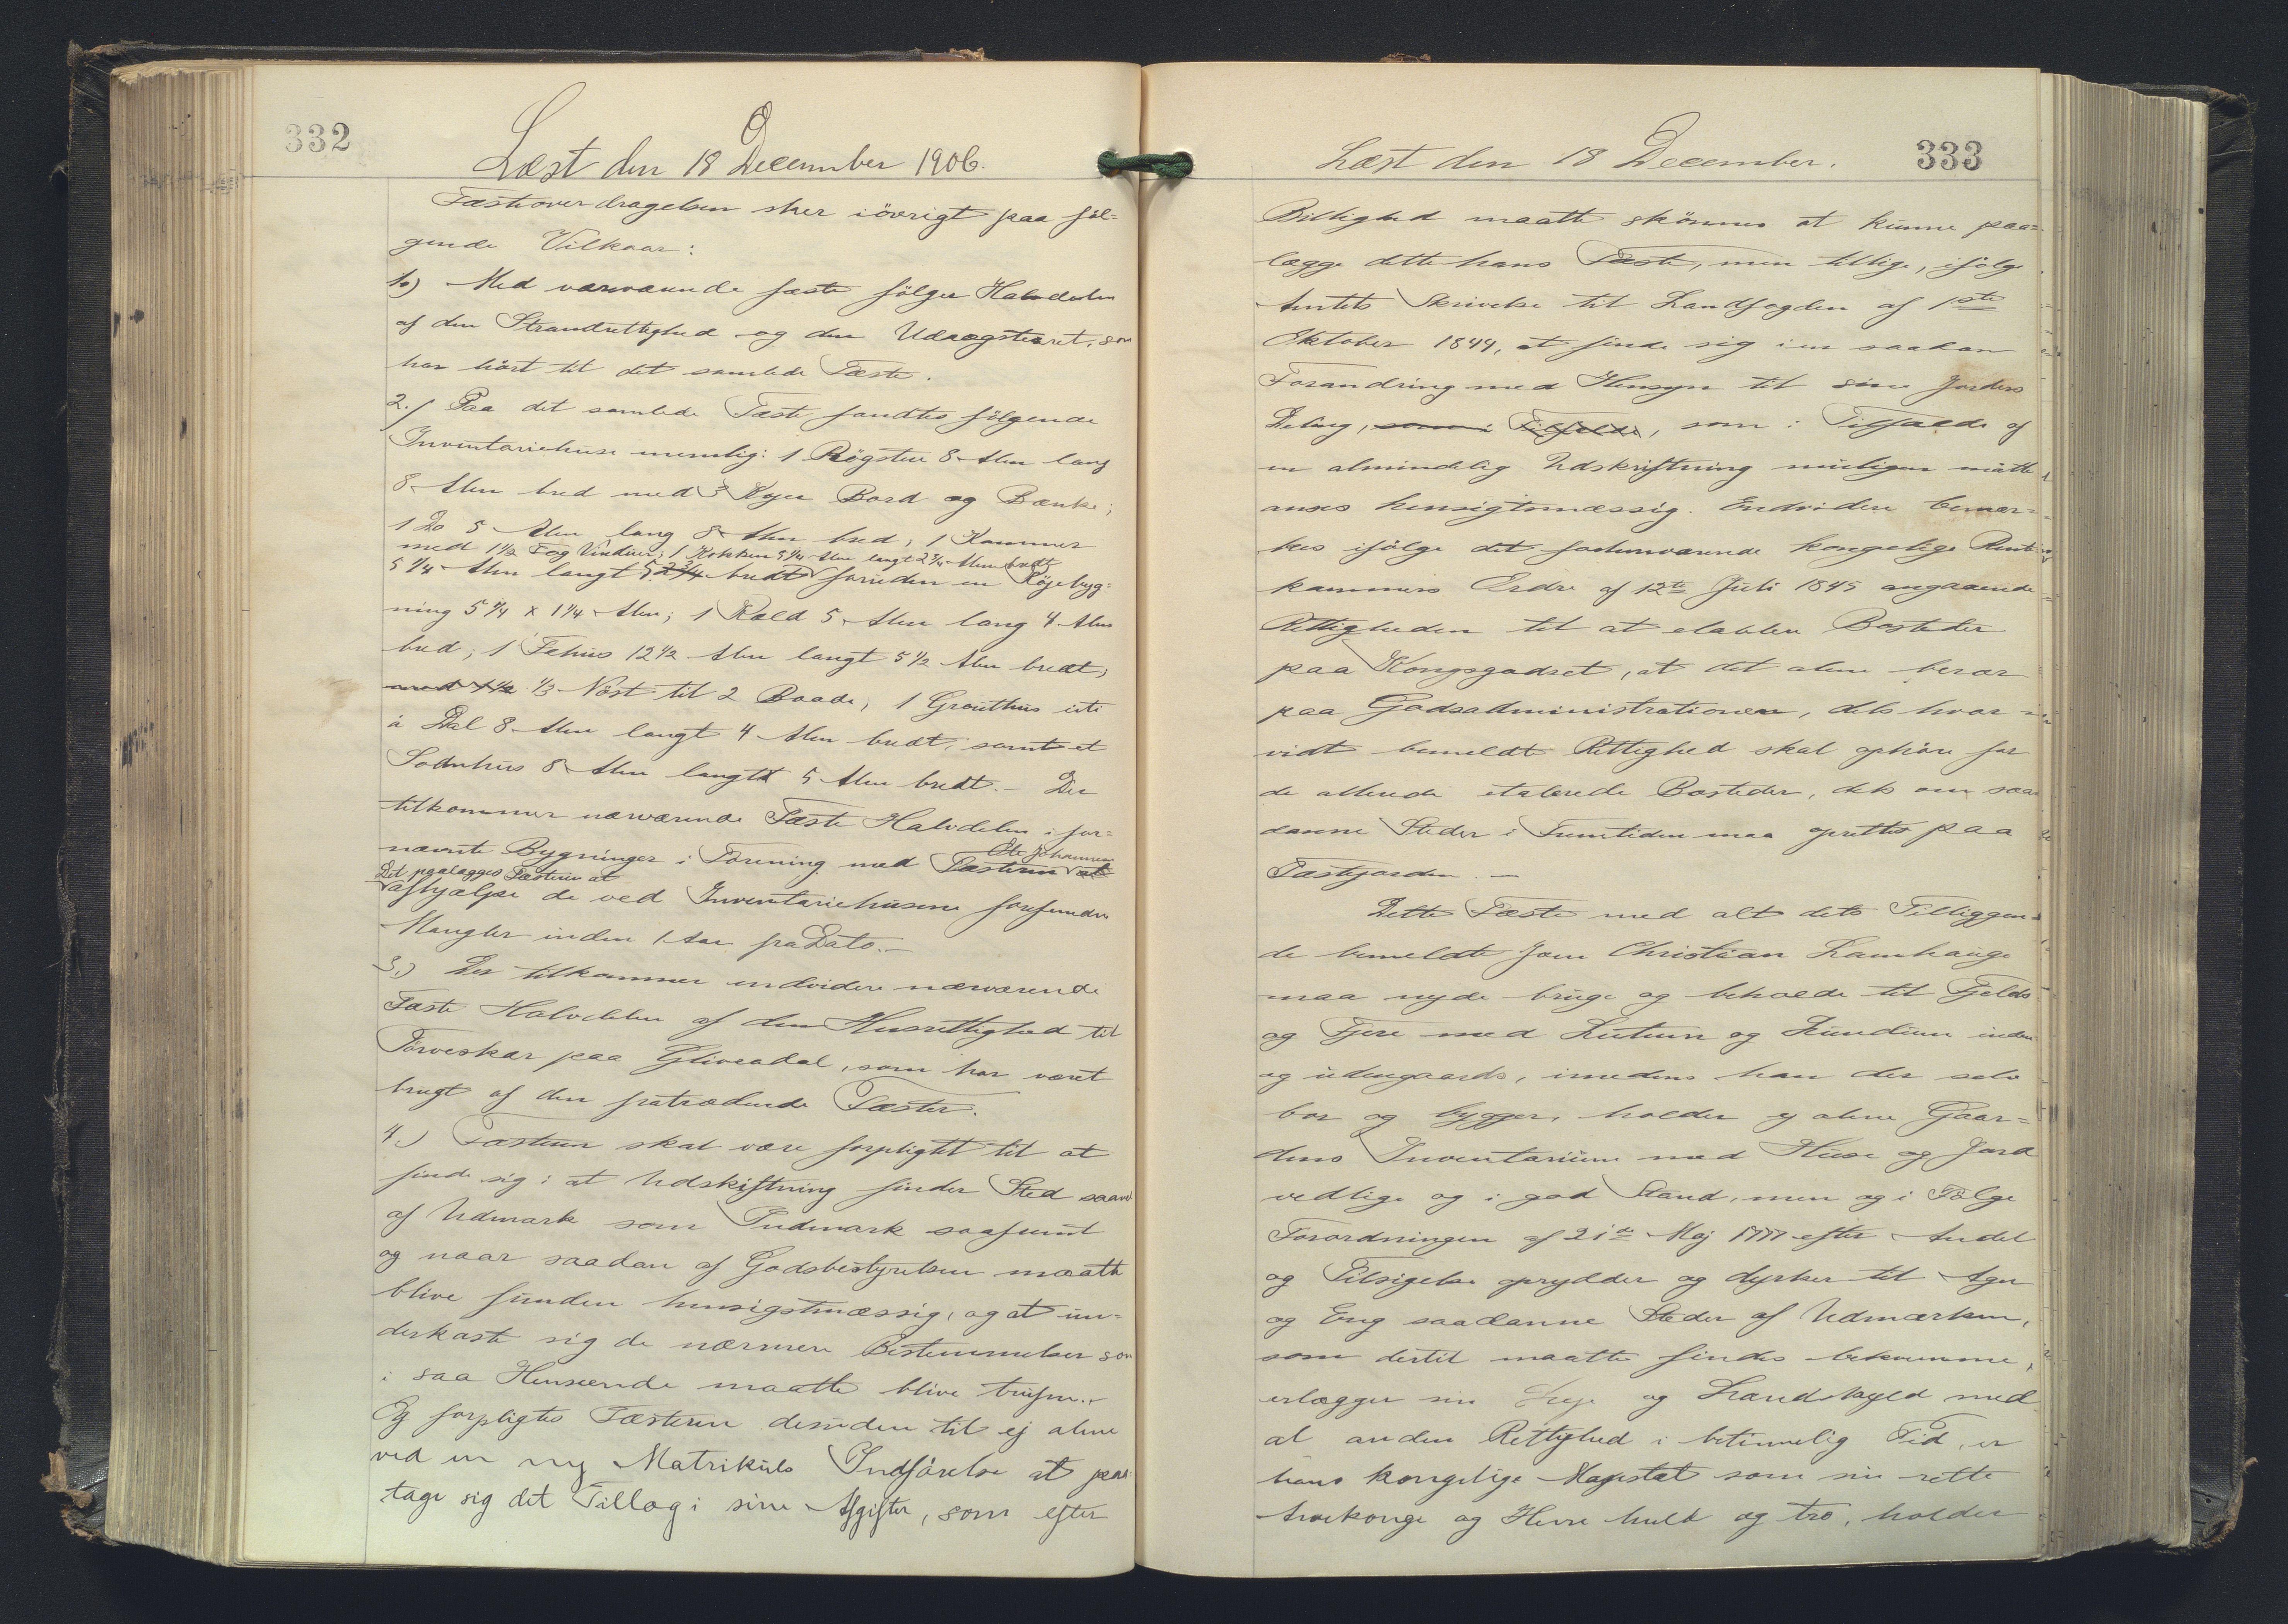 332
Læst den 18 December 1906.
Fæsteoverdragelsen sker iövrigt paa föl=
gende Vilkaar:
1.) Med værværende fæste fölger Halvdelen
af den Strandrettighed og den Udrogsteret, som
har hört til det samlede Fæste.
2.) Paa det samlede Fæste fandtes fölgende
Inventariehuse nemlig: 1 Rögstue 8 Alen lang
8 Alen bred med 3 Køjer Bord og Bænke;
1 Do 5 Alen lang 8 Alen bred; 1 Kammer
med 1½ Fag Vinduer; 1 Kokken 5¼ Alen langt 2¾ Alen bredt
5¼ Alen langt 5 2¾ bredt foruden en Köjebyg=
ning 5¼ x 1¼ Alen; 1 Kæld 5 Alen lang 4 Alen
bred; 1 Fehus 12½ Alen langt 5½ Alen bredt;
med 1½ ⅓ Nöst til 2 Baade; 1 Grouthus uti
á Dal 8 Alen langt 4 Alen bredt; samt et
Sodnhus 8 Alen langt 5 Alen bredt. – Der
tilkommer nærværende Fæste Halvdelen i for=
nævnte Bygninger i Forening med Fæsteren at
Ole Johannesen
Det paalægges Fæsteren at
afhjælpe de ved Inventariehusene forefundne
Mangler inden 1 Aar fra Dato. –
3.) Der tilkommer endvidere nærværende
Fæste Halvdelen af den Husrettighed til
Törveskær paa Gliveadal, som har været
brugt af den fratrædende Fæster.
4.) Fæsteren skal være forpligtet til at
finde sig i at Udskiftning finder Sted saavel
af Udmark som Indmark saafremt
og naar saadan af Godsbestyrelsen maatte
blive funden hensigstmæssig, og at un=
derkaste sig de nærmere Bestemmelser som
i saa Henseende maatte blive trufne. –
Og forpligtes Fæsteren desuden til ej alene
ved en ny Matrikuls Indförelse at paa=
tage sig det Tillæg i sine Afgifter, som efter
Læst den 18 December.
333
Billighed maatte skönnes at kunne paa=
lægge dette hans Fæste, men tillige, ifölge
Amtets Skrivelse til Landfogden af 1ste
Oktober 1844, at finde sig i en saadan
Forandring med Hensyn til sine Jorders
Deling, som i Tilfælde, som i Tilfælde af
en almindelig Udskriftning muligen maatte
anses hensigtsmæssig. Endvidere bemær=
kes ifölge det forhenværende kongelige Rent
kammers Ordre af 12te Juli 1845 angaaende
Rettigheden til at etablere Bosteder
paa Kongsgodset, at det alene beror
paa Godsadministrationen, dels hvor=
vidt bemeldte Rettighed skal ophöre for
de allerede etablerede Bosteder, dels om saa
danne Steder i Fremtiden maa oprettes paa
Fæstejorden. –
Dette Fæste med alt dets Tilliggen=
de bemeldte Joen Christian Lamhauge
maa nyde bruge og beholde til Fjelds
og Fjere med Lutum og Lundum inden
og udengaards, imedens han der selv
bor og bygger, holder ej alene Gaar=
dens Inventarium med Huse og Jord
vedlige og i god Stand, men og i Fölge
Forordningen af 21de Maj 1777 efter Andel
og Tilsigelse oprydder og dyrker til Ager
og Eng saadanne Steder af Udmarken,
som dertil maatte findes bekvemme,
erlægger sin Leje og Landskyld med
al anden Rettighed i betimelig Tid, er
hans kongelige Majestæt som sin rette
Arvekonge og Herre huld og tro, holder